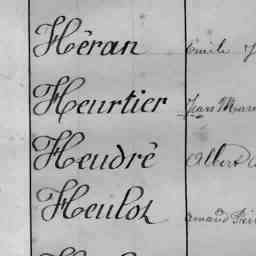 Héran Émile
Heurtier Jean Marie
Heudré Albert
Heulot Amand